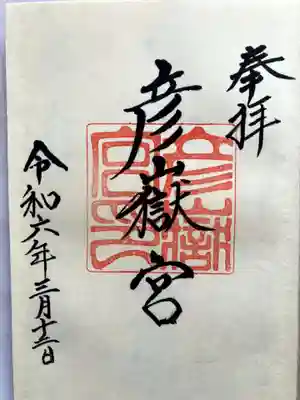 奉拝
彦嶽宮
令和六年三月十二日